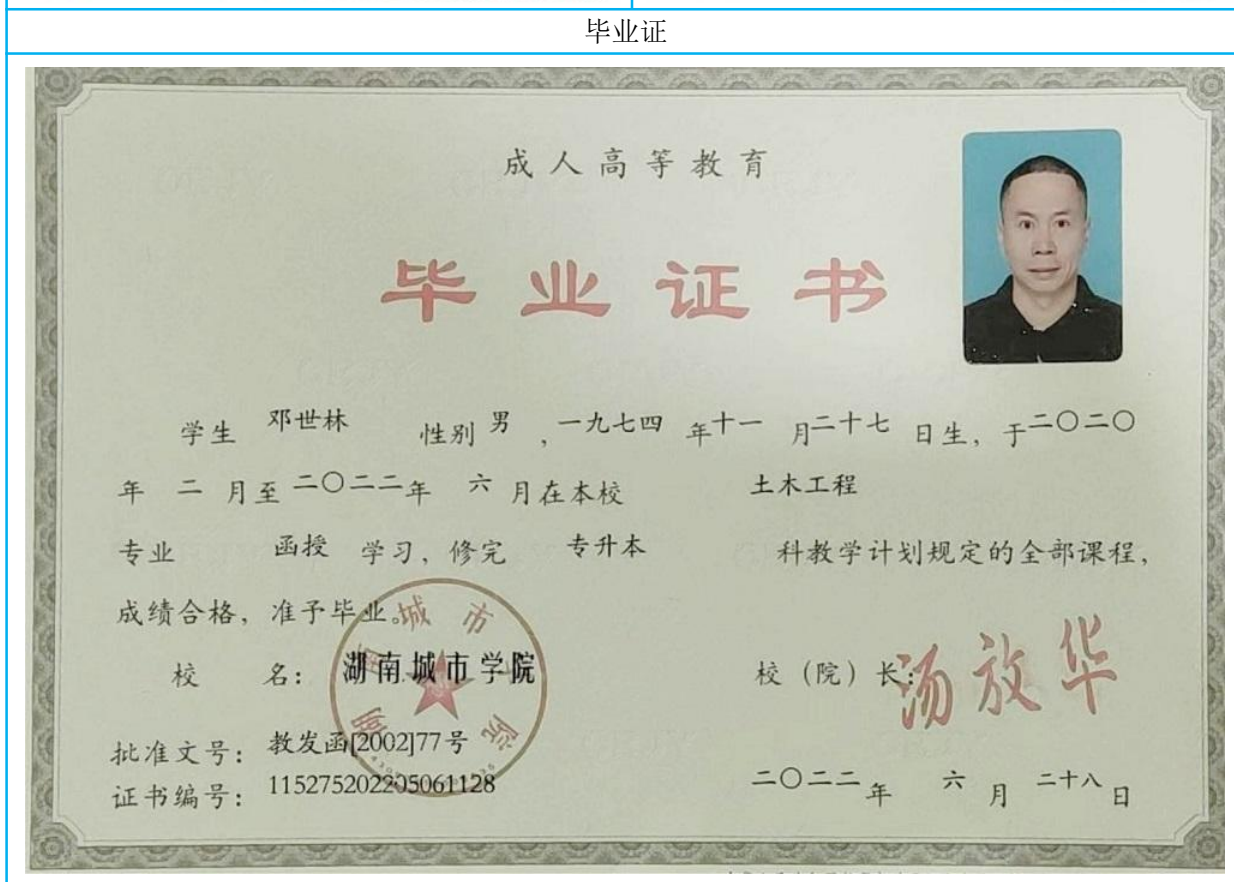 毕业证
成人高等教育
毕业证书
学生 邓世林 性别 男 ,一九七四 年十一 月二十七 日生, 于二〇二〇
年 二 月至 二〇二二年 六 月在本校 土木工程
专业 函授 学习, 修完 专升本 科教学计划规定的全部课程,
成绩合格, 准予毕业。
校 名: 湖南城市学院
校（院）长: 汤放华
湖南城市学院
批准文号: 教发函[2002]77号
证书编号: 115275202205061128
二〇二二年 六 月 二十八 日